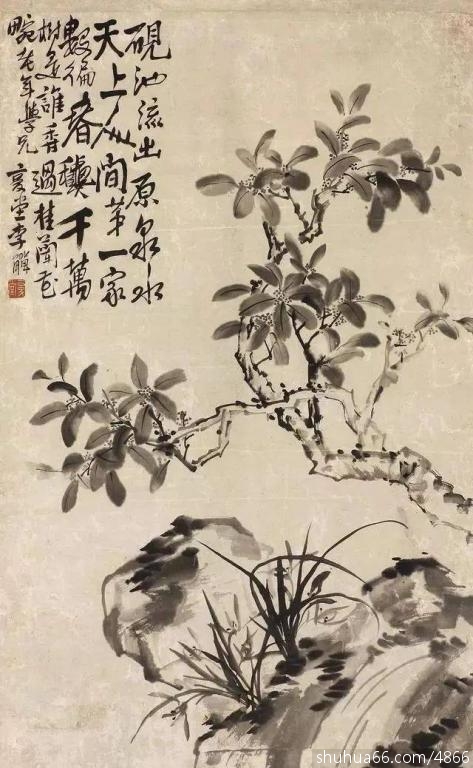 硯池流出原泉水
天上人間第一家
數徧春穠千萬
樹是誰香過桂蘭花
畹年學兄 復堂李鱓
shuhua66.com/4866